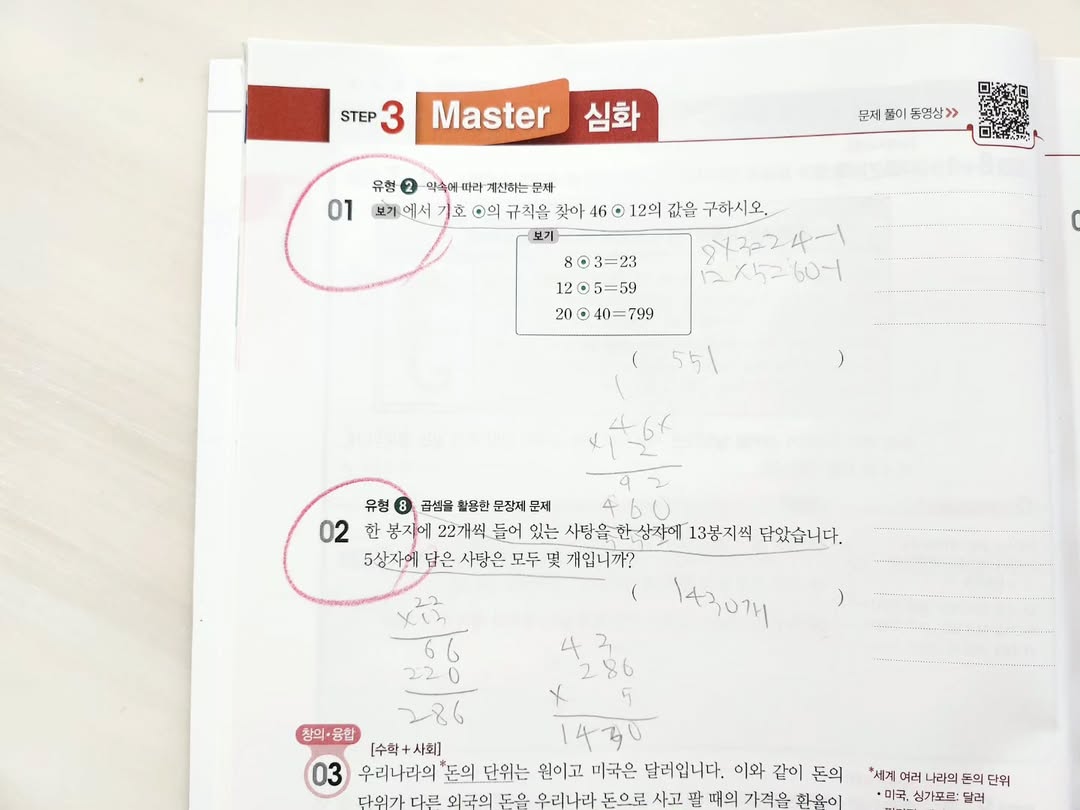 STEP 3 Master 심화
문제 풀이 동영상 >>
유형 2 약속에 따라 계산하는 문제
01 보기 에서 기호 ⊙의 규칙을 찾아 46 ⊙ 12의 값을 구하시오.
보기
8 ⊙ 3=23
12 ⊙ 5=59
20 ⊙ 40=799
8×3=24-1
12×5=60-1
( 551 )
1
46×
×12
92
460
552
유형 8 곱셈을 활용한 문장제 문제
02 한 봉지에 22개씩 들어 있는 사탕을 한 상자에 13봉지씩 담았습니다.
5상자에 담은 사탕은 모두 몇 개입니까?
( 1430개 )
22
×13
66
220
286
4 3
286
× 5
1430
창의·융합
[수학+사회]
03 우리나라의 *돈의 단위는 원이고 미국은 달러입니다. 이와 같이 돈의
단위가 다른 외국의 돈을 우리나라 돈으로 사고 팔 때의 가격을 환율이
*세계 여러 나라의 돈의 단위
• 미국, 싱가포르: 달러